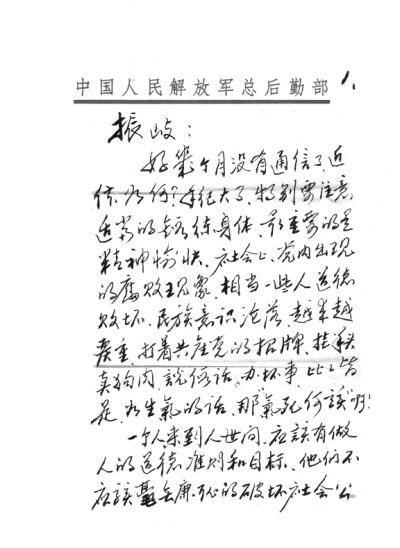 中国人民解放军总后勤部
1.
振岐：
好几个月没有通信了，近
体如何？年纪大了，特别要注意
适当的锻练身体，最重要的是
精神愉快。社会上、党内出现
的腐败现象，相当一些人道德
败坏、民族意识沦落，越来越
严重，打着共产党的招牌，挂羊头
卖狗肉，說假话，办坏事，比比皆
是，如生氣的话，那“氣死何該”啊！
一个人来到人世间，应該有做
人的道德准则和目标，他们不
应該毫无廉耻的破坏社会公